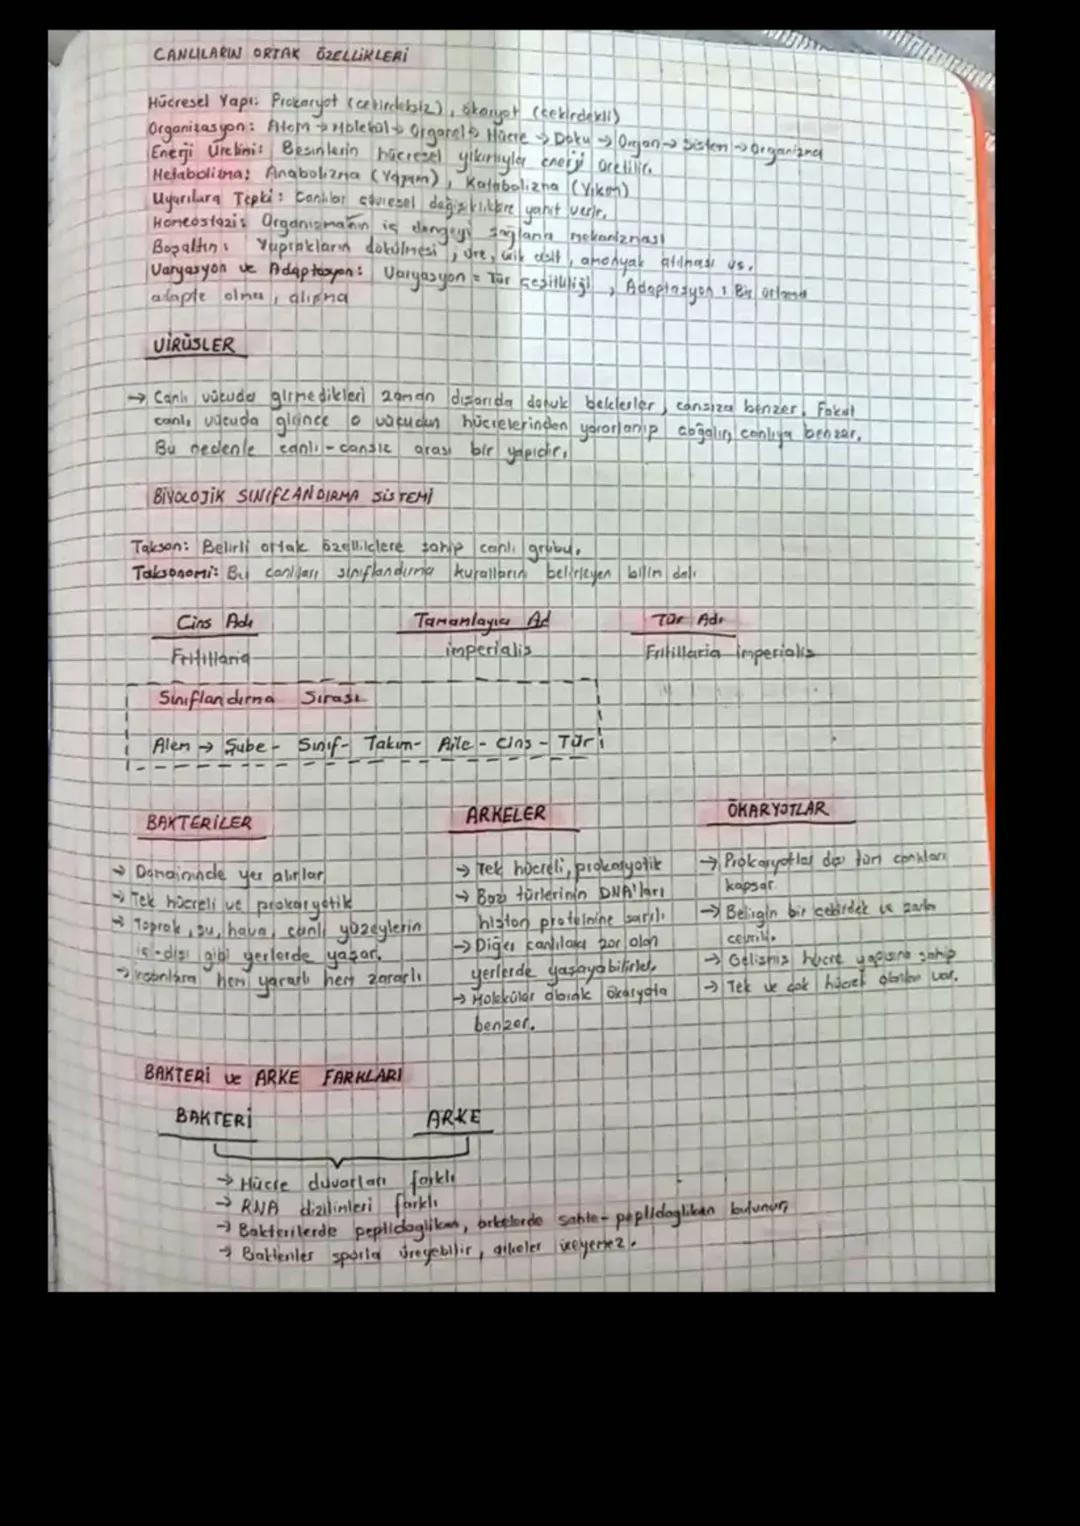 CANLILARIN ORTAK ÖZELLİKLERİ
Hücresel Yapı: Prokaryot (çekirdeksiz), ökaryot (çekirdekli)
Organizasyon: Atom → Molekül → Organel → Hücre → Doku → Organ → Sistem → Organizma
Enerji Üretimi: Besinlerin hücresel yıkımıyla enerji üretilir.
Metabolizma: Anabolizma (Yapım), Katabolizma (Yıkım)
Uyarılara Tepki: Canlılar çevresel değişikliklere yanıt verir.
Homeostazi: Organizmanın iç dengeyi sağlama mekanizması
Boşaltım: Yaprakların dökülmesi, üre, ürik asit, amonyak atılması vs.
Varyasyon ve Adaptasyon: Varyasyon = Tür çeşitliliği, Adaptasyon: Bir ortama
adapte olma, alışma
VİRÜSLER
→ Canlı vücuda girmedikleri zaman dışarıda donuk beklerler, cansıza benzer. Fakat
canlı vücuda girince o vücudun hücrelerinden yararlanıp çoğalır, canlıya benzer.
Bu nedenle canlı-cansız arası bir yapıdır.
BİYOLOJİK SINIFLANDIRMA SİSTEMİ
Takson: Belirli ortak özelliklere sahip canlı grubu.
Taksonomi: Bu canlıları sınıflandırma kurallarını belirleyen bilim dalı
Cins Adı Tanamlayıcı Ad Tür Adı
Fritillaria imperialis Fritillaria imperialis
Sınıflandırma Sırası
Alem → Şube - Sınıf - Takım - Aile - Cins - Tür
BAKTERİLER
→ Domaininde yer alırlar
→ Tek hücreli ve prokaryotik
→ Toprak, su, hava, canlı yüzeylerin
iç-dışı gibi yerlerde yaşar.
→ insanlara hem yararlı hem zararlı
ARKELER
→ Tek hücreli, prokaryotik
→ Bazı türlerinin DNA'ları
histon proteinine sarılı
→ Diğer canlılara zor olan
yerlerde yaşayabilirler.
→ Moleküler olarak ökaryota
benzer.
ÖKARYOTLAR
→ Prokaryotlar dışı tüm canlıları
kapsar
→ Belirgin bir çekirdek ve zarla
çevrili.
→ Gelişmiş hücre yapısına sahip
→ Tek ve çok hücreli olanları var.
BAKTERİ ve ARKE FARKLARI
BAKTERİ ARKE
→ Hücre duvarları farklı
→ RNA dizilimleri farklı
→ Bakterilerde peptidoglikan, arkelerde sahte-peptidoglikan bulunur,
→ Bakteriler sporla üreyebilir, arkeler üreyemez.